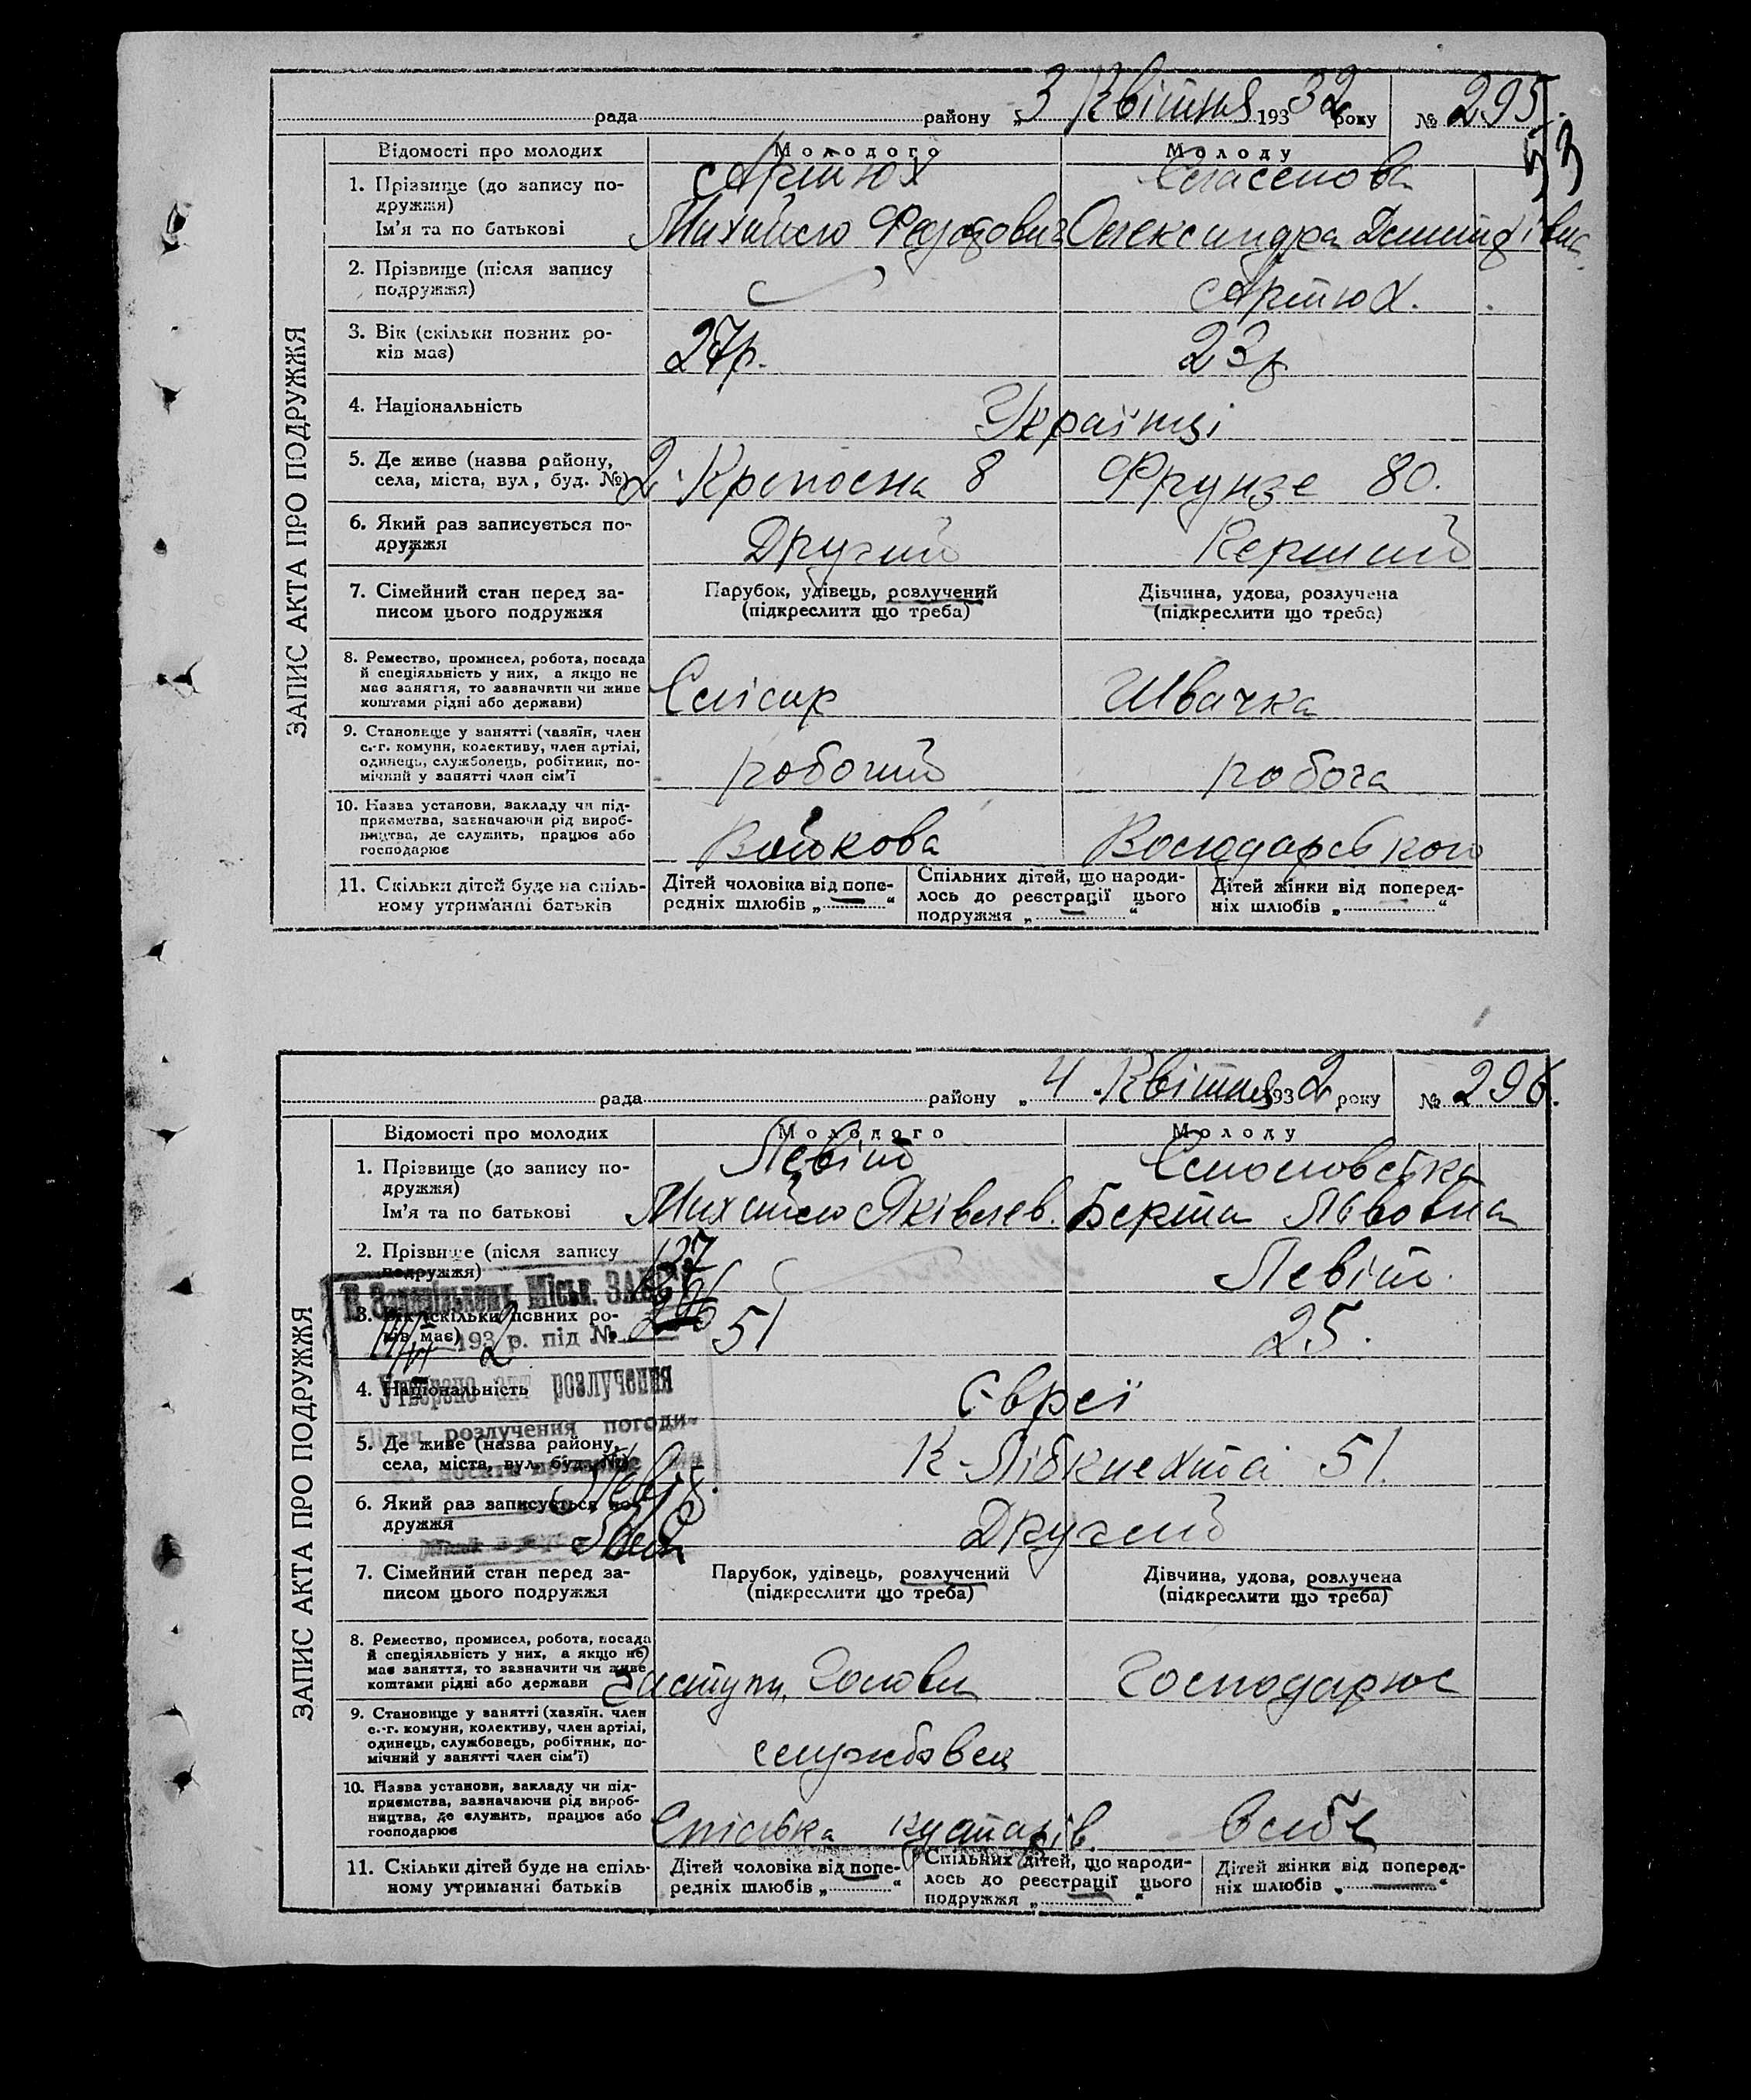 рада района „3 Квітня 1932 року № 295.
53
ЗАПИС АКТА ПРО ПОДРУЖЖЯ
Відомості про молодих
Молодого
Молоду
1. Прізвище (до запису по-
дружжя)
Ім'я та по батькові
Артюх
Михайло Федодович
Олександра
2. Прізвище (після запису
подружжя)
Артюх.
3. Вік (скільки повних ро-
ків має)
27р.
23р
4. Національність
Українці
5. Де живе (назва району,
села, міста, вул, буд. №)
2. Крепосна 8
Фрунзе 80.
6. Який раз записується по-
дружжя
Другий
Перший
7. Сімейний стан перед за-
писом цього подружжя
Парубок, удівець, розлучений
(підкреслити що треба)
Дівчина, удова, розлучена
(підкреслити що треба)
8. Ремество, промисел, робота, посада
й спеціяльність у них, а якщо не
має заняття, то зазначити чи живе
коштами рідні або держави)
Слісар
Швачка
9. Становище у занятті (хазяїн, член
с.-г. комуни, колективу, член артілі,
одинець, службовець, робітник, по-
мічний у занятті член сім'ї
робочий
робоча
10. Назва установи, закладу чи під-
приємства, зазначаючи рід вироб-
ництва, де служить, працює або
господарює
Войкова
Володарського
11. Скільки дітей буде на спіль-
ному утриманні батьків
Дітей чоловіка від попе-
редніх шлюбів „ — “
Спільних дітей, що народи-
лось до реєстрації цього
подружжя „ — “
Дітей жінки від поперед-
ніх шлюбів „ “
рада району „4 Квітня 1932 року № 296.
ЗАПИС АКТА ПРО ПОДРУЖЖЯ
Відомості про молодих
Молодого
Молоду
1. Прізвище (до запису по-
дружжя)
Ім'я та по батькові
Левіт
Михайло Яківлев.
Берта Львовна
2. Прізвище (після запису
подружжя)
Левіт.
3. Вік (скільки повних ро-
ків має)
51
25.
Міськ. ЗАГС
193 2 р. під №
Утворено акт розлучення
розлучення погоди-
4. Національність
Євреї
5. Де живе (назва району,
села, міста, вул. буд. №)
К-Лібкнехта 51.
6. Який раз записується по-
дружжя
Другий
7. Сімейний стан перед за-
писом цього подружжя
Парубок, удівець, розлучений
(підкреслити що треба)
Дівчина, удова, розлучена
(підкреслити що треба)
8. Ремество, промисел, робота, посада
й спеціяльність у них, а якщо не
має заняття, то зазначити чи живе
коштами рідні або держави
Заступн. Голови
Господарює
9. Становище у занятті (хазяїн. член
с.-г. комуни, колективу, член артілі,
одинець, службовець, робітник, по-
мічний у занятті член сім'ї)
службовец
10. Назва установи, закладу чи під-
приємства, зазначаючи рід вироб-
ництва, де служить, працює або
господарює
Спілька кустарів.
В себе
11. Скільки дітей буде на спіль-
ному утриманні батьків
Дітей чоловіка від попе-
редніх шлюбів „ — “
Спільних дітей, що народи-
лось до реєстрації цього
подружжя „ — “
Дітей жінки від поперед-
ніх шлюбів „ — “